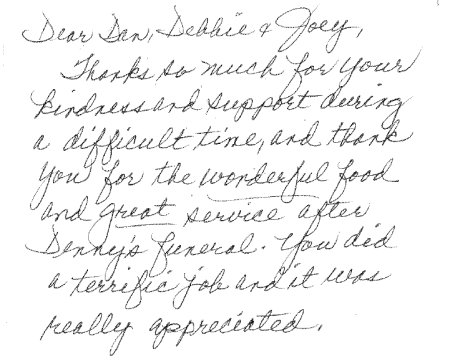 Dear Dan, Debbie & Joey,
Thanks so much for your
kindness and support during
a difficult time, and thank
you for the wonderful food
and great service after
Denny's funeral. You did
a terrific job and it was
really appreciated.